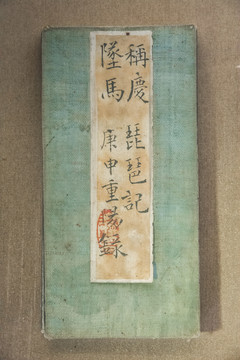 稱慶 琵琶記
墜馬 庚申重錄